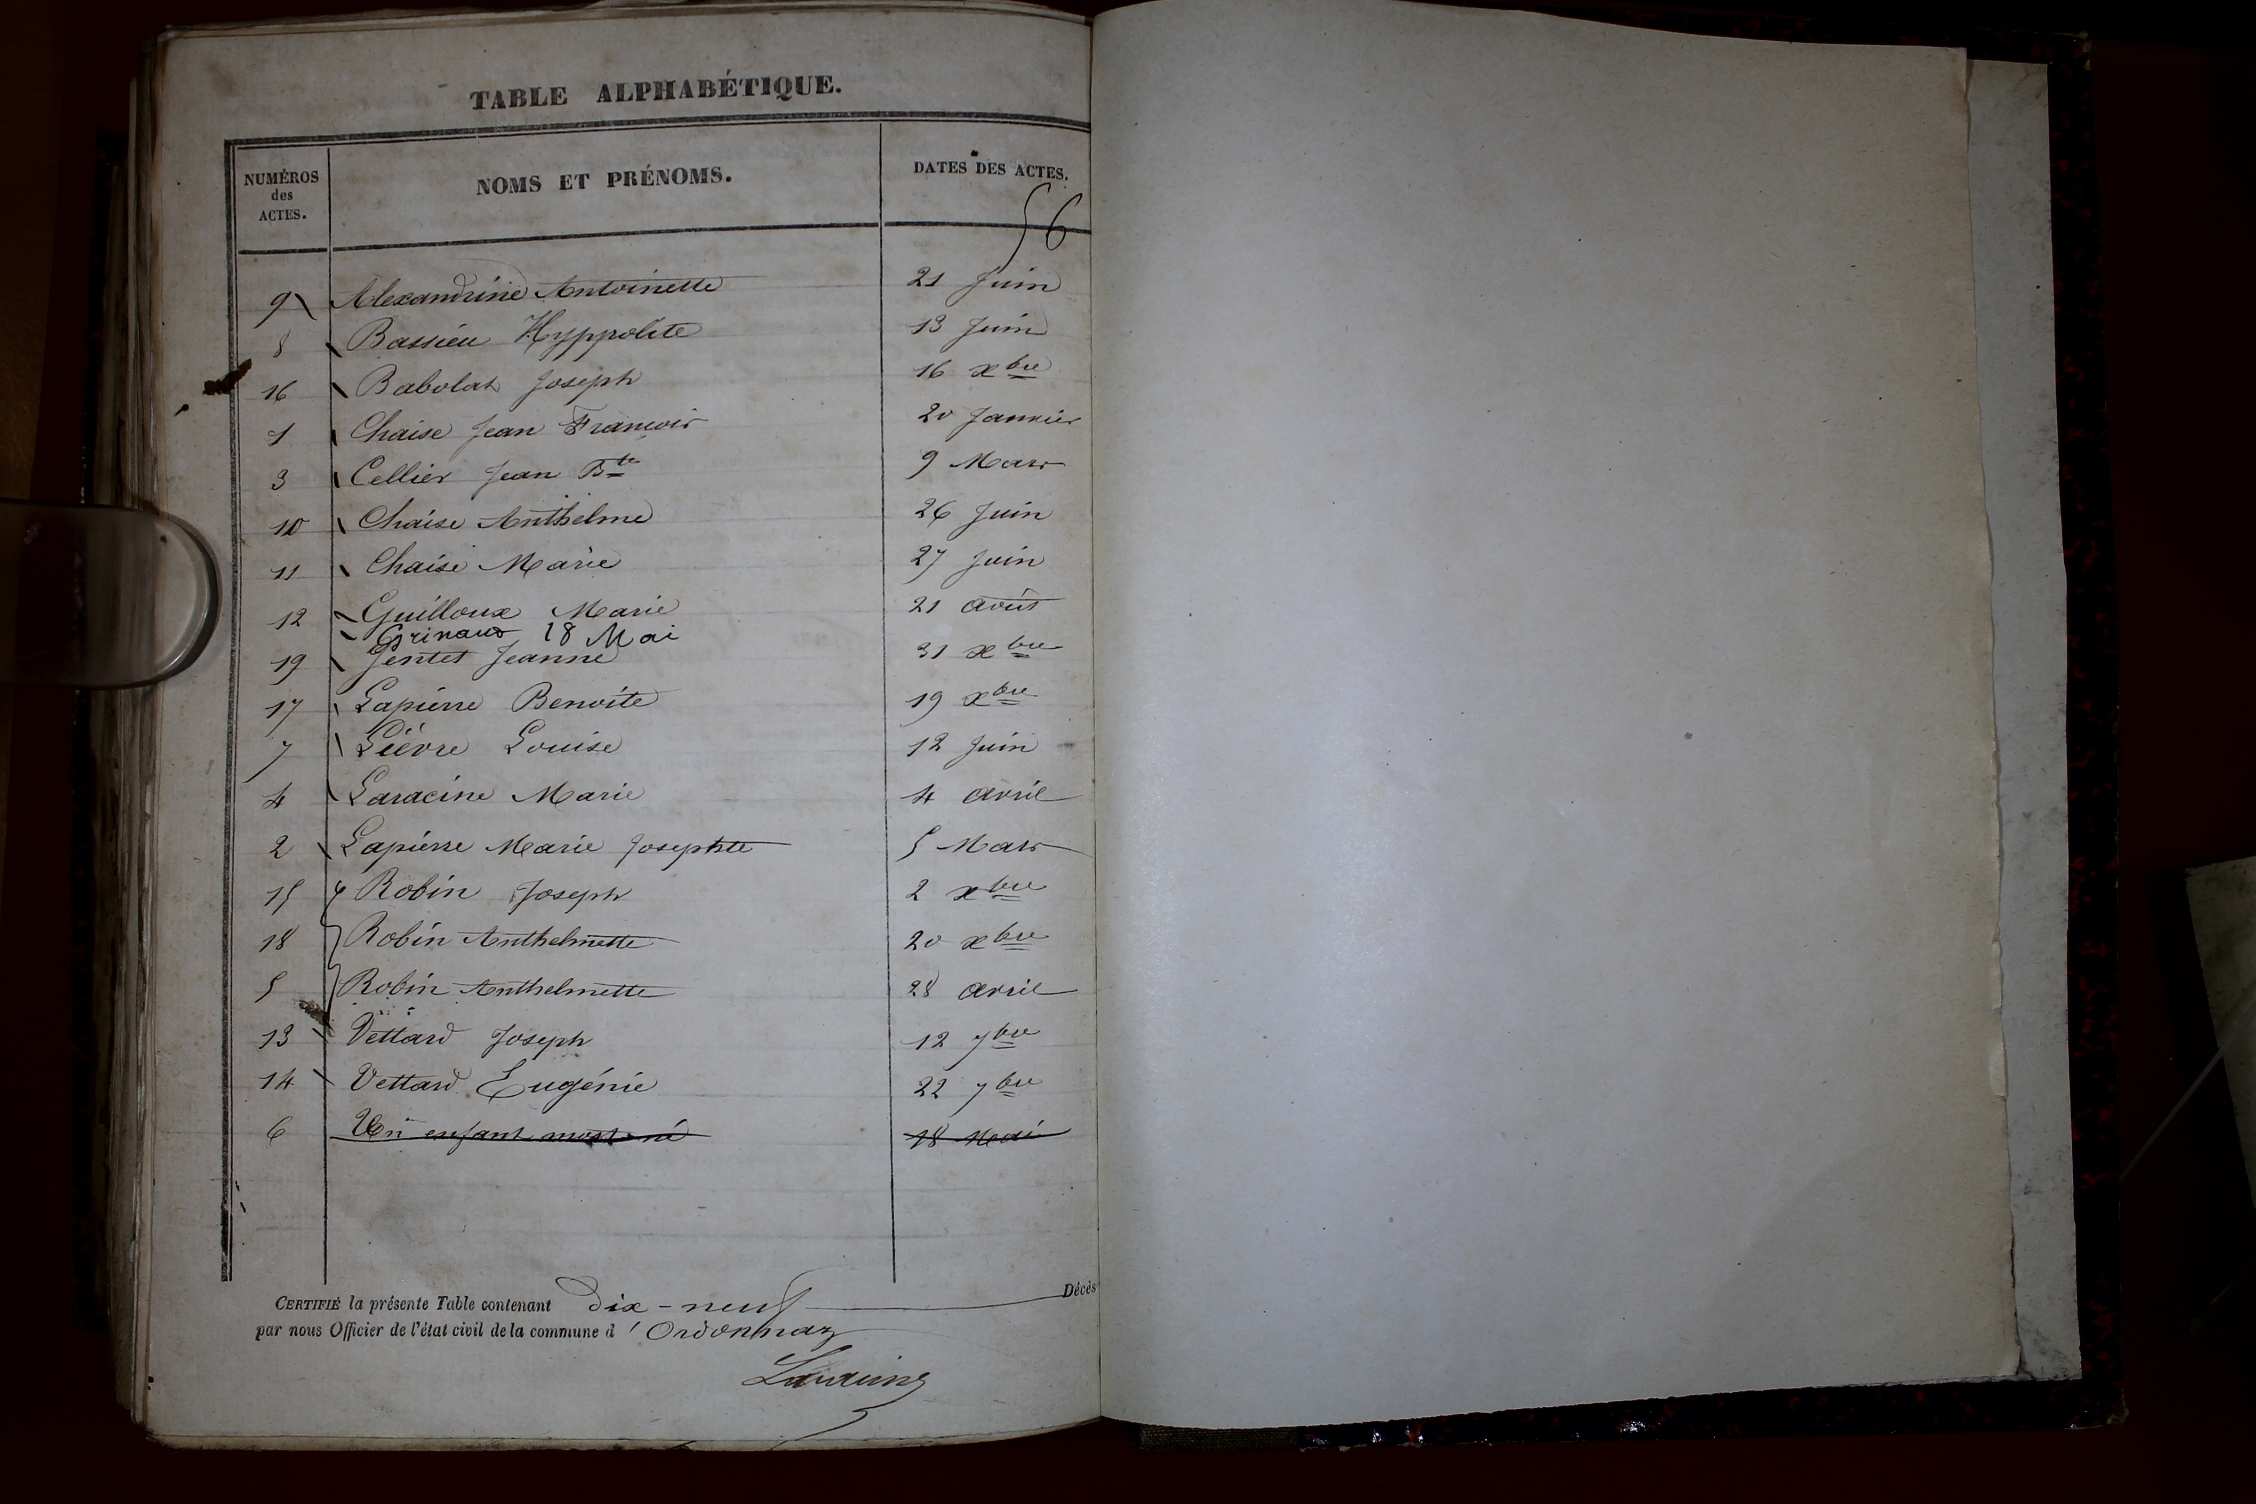 TABLE ALPHABÉTIQUE.
NUMÉROS des ACTES. NOMS ET PRÉNOMS. DATES DES ACTES.
56
9 Alexandrine Antoinette 21 Juin
8 Bassieu Hyppolite 13 Juin
16 Babolat Joseph 16 xbre
1 Chaise Jean François 20 Janvier
3 Cellier Jean Bte 9 Mars
10 Chaise Anthelme 26 Juin
11 Chaise Marie 27 Juin
12 Guilloux Marie 21 août
Grinand 18 Mai
19 Jentet Jeanne 31 xbre
17 Lapierre Benoite 19 xbre
7 Lièvre Louise 12 Juin
4 Laracine Marie 4 avril
2 Lapierre Marie Josephte 5 Mars
15 Robin Joseph 2 xbre
18 Robin Anthelmette 20 xbre
5 Robin Anthelmette 28 avril
13 Vettard Joseph 12 7bre
14 Vettard Eugénie 22 7bre
6 Un enfant mort-né 18 Mai
CERTIFIÉ la présente Table contenant dix-neuf Décès
par nous Officier de l'état civil de la commune d'Ordonnaz
Laracine